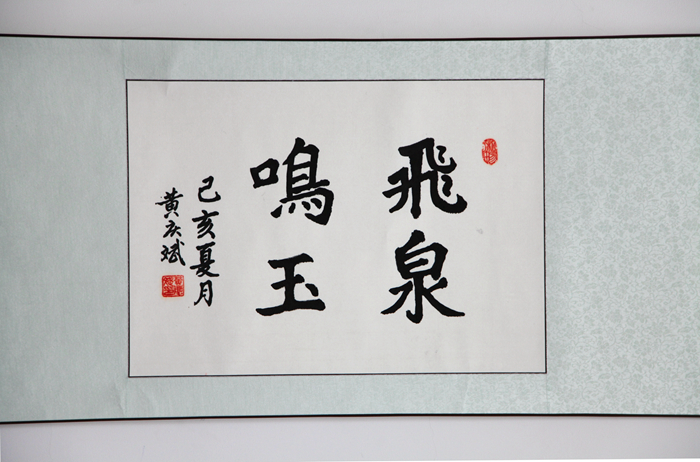 飛泉
鳴玉
己亥夏月
黄庆斌